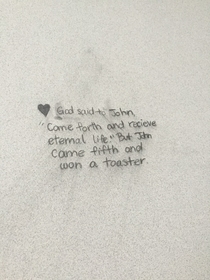 ♥ God said to John
"Come forth and recieve
eternal life." But John
came fifth and
won a toaster.